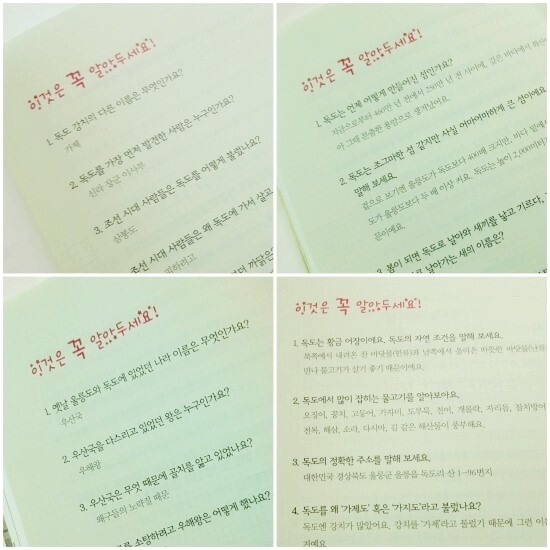 이것은 꼭 알아두세요!
1. 독도 강치의 다른 이름은 무엇인가요?
가제
2. 독도를 가장 먼저 발견한 사람은 누구인가요?
신라 장군 이사부
3. 조선 시대 사람들은 독도를 어떻게 불렀나요?
삼봉도
조선 시대 사람들은 왜 독도에 가서 살고
피하려고
까닭은?
이것은 꼭 알아두세요!
1. 독도는 언제 어떻게 만들어진 섬인가요?
지금으로부터 460만 년 전에서 250만 년 전 사이에, 깊은 바다에서 화산
아 그때 분출한 용암으로 생겨났어요.
2. 독도는 조그마한 섬 같지만 사실 어마어마하게 큰 섬이에요
말해 보세요.
겉으로 보기엔 울릉도가 독도보다 400배 크지만, 바다 밑에
도가 울릉도보다 두 배 이상 커요. 독도는 높이 2,000미터
문이에요.
3. 봄이 되면 독도로 날아와 새끼를 낳고 기르다,
로 날아가는 새의 이름은?
이것은 꼭 알아두세요!
1. 옛날 울릉도와 독도에 있었던 나라 이름은 무엇인가요?
우산국
2. 우산국을 다스리고 있었던 왕은 누구인가요?
우해왕
3. 우산국은 무엇 때문에 골치를 앓고 있었나요?
왜구들의 노략질 때문
소탕하려고 우해왕은 어떻게 했나요?
이것은 꼭 알아두세요!
1. 독도는 황금 어장이에요. 독도의 자연 조건을 말해 보세요.
북쪽에서 내려온 찬 바닷물(한류)과 남쪽에서 올라온 따뜻한 바닷물(난류)
만나 물고기가 살기 좋기 때문이에요.
2. 독도에서 많이 잡히는 물고기를 알아보아요.
오징어, 꽁치, 고등어, 가자미, 도루묵, 전어, 개볼락, 자리돔, 참치방어
전복, 해삼, 소라, 다시마, 김 같은 해산물이 풍부해요.
3. 독도의 정확한 주소를 말해 보세요.
대한민국 경상북도 울릉군 울릉읍 독도리 산 1-96번지
4. 독도를 왜 '가제도' 혹은 '가지도'라고 불렀나요?
독도엔 강치가 많았어요. 강치를 '가제'라고 불렀기 때문에 그런 이
지예요